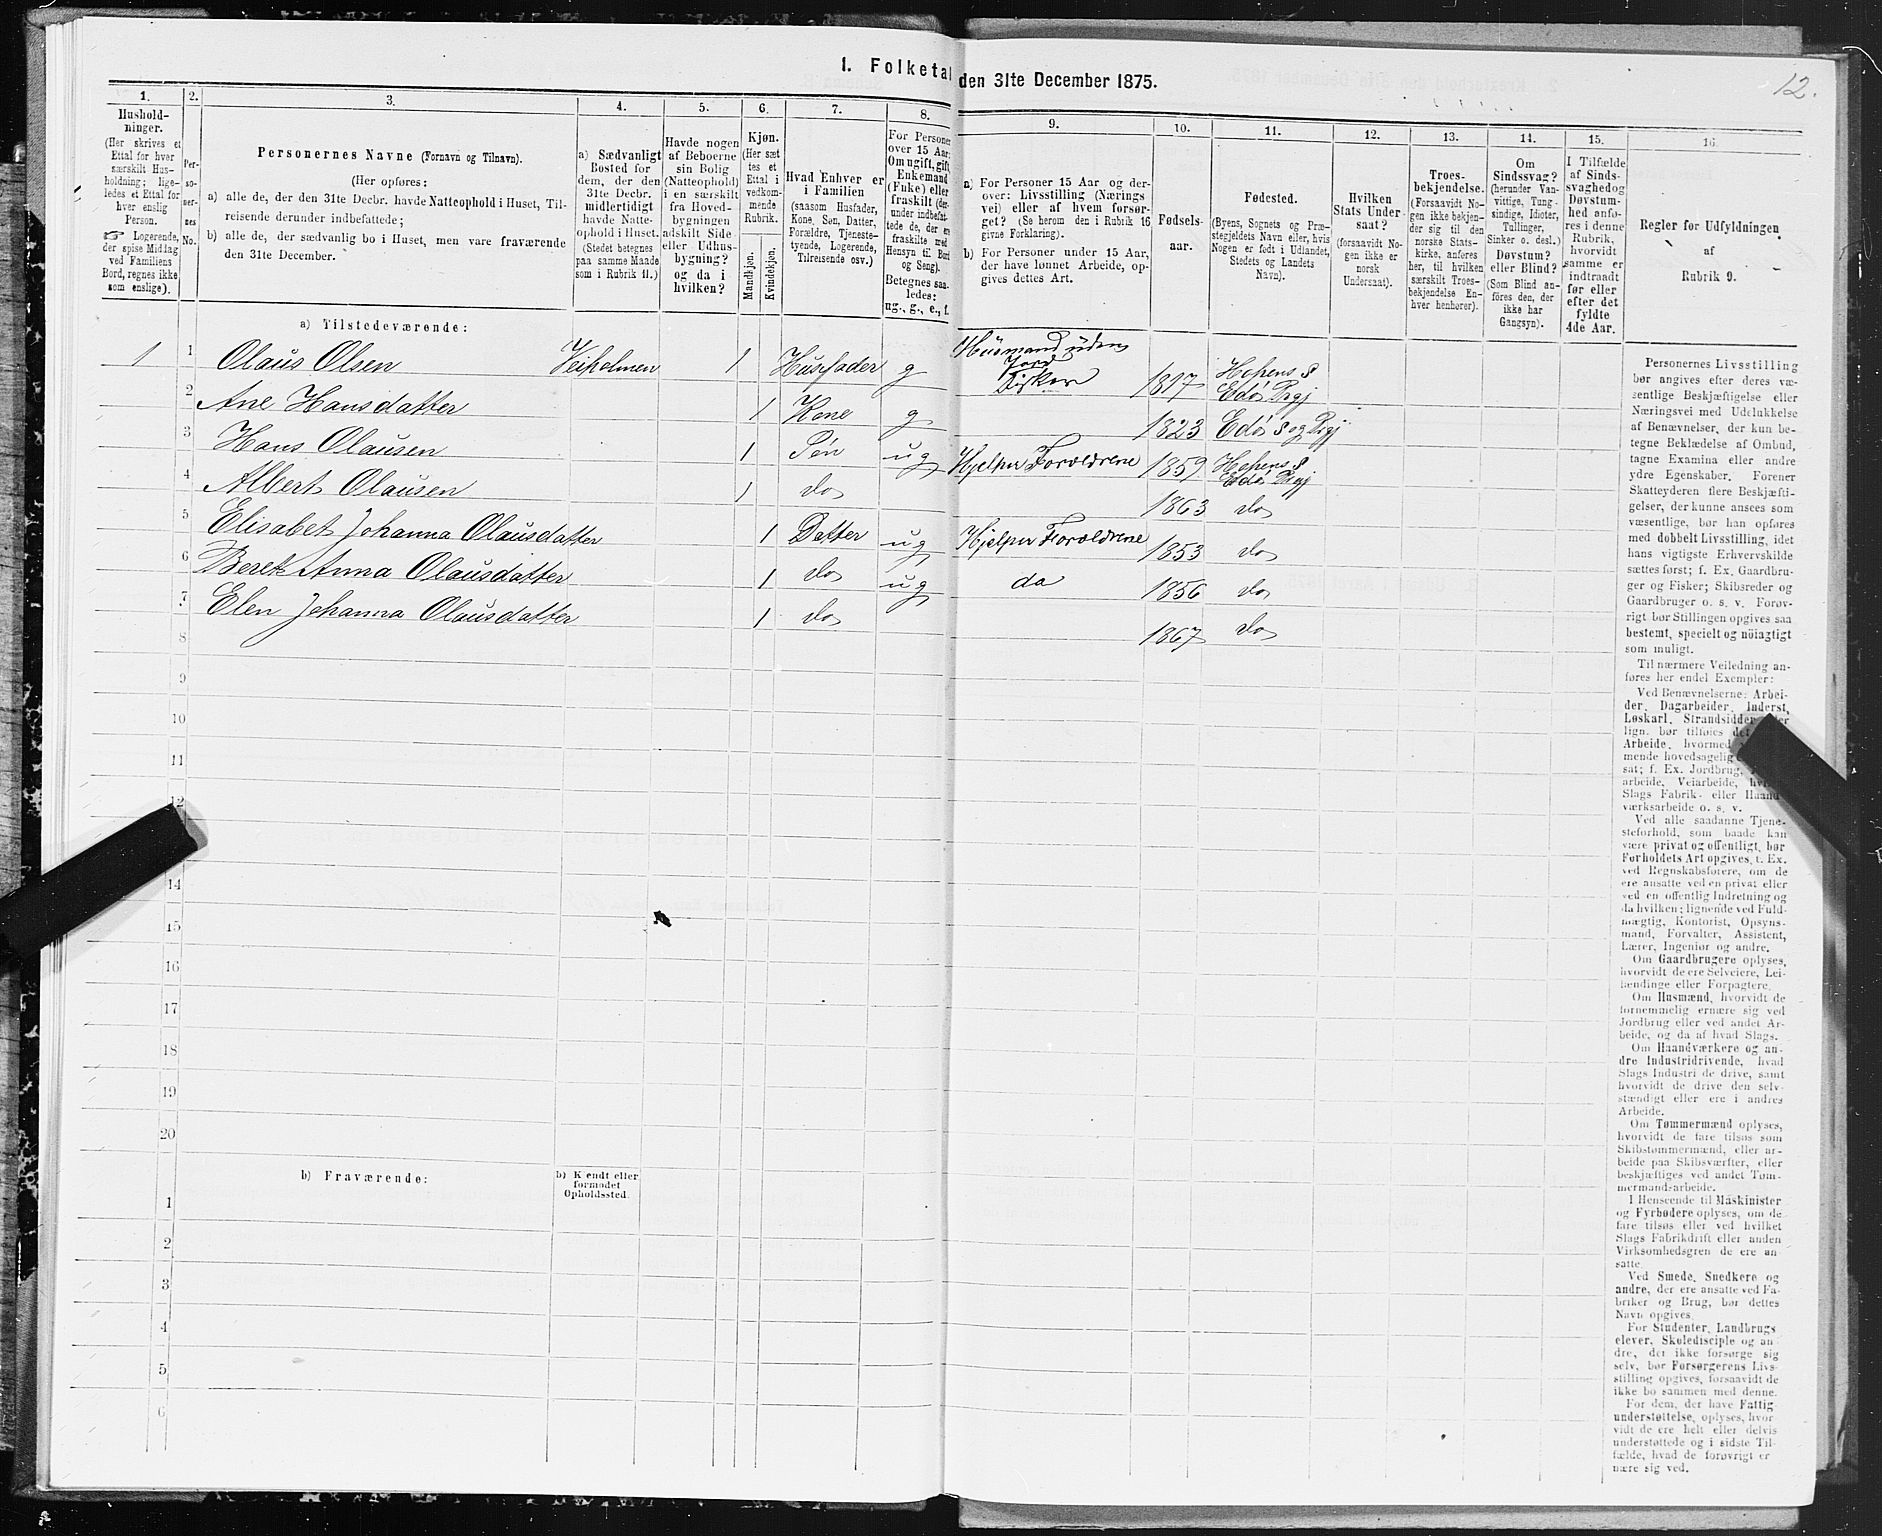 12.
1. Folketal den 31te December 1875.
1.
Hushold-
ninger.
(Her skrives et
Ettal for hver
særskilt Hus-
holdning; lige-
ledes et Ettal for
hver enslig
Person.
☞ Logerende,
der spise Middag
ved Familiens
Bord, regnes ikke
som enslige).
2.
Per-
so-
ner-
nes
No.
3.
Personernes Navne (Fornavn og Tilnavn).
(Her opføres:
a) alle de, der den 31te Decbr. havde Natteophold i Huset, Til-
reisende derunder indbefattede;
b) alle de, der sædvanlig bo i Huset, men vare fraværende
den 31te December.
4.
a) Sædvanligt
Bosted for
dem, der den
31te Decbr.
midlertidigt
havde Natte-
ophold i Huset.
(Stedet betegnes
paa samme Maade
som i Rubrik 11.)
5.
Havde nogen
af Beboerne
sin Bolig
(Natteophold)
i en særskilt
fra Hoved-
bygningen
adskilt Side-
eller Udhus-
bygning?
og da i
hvilken?
6.
Kjøn.
(Her sæt
tes et
Ettal i
vedkom-
mende
Rubrik.
Mandkjøn.
Kvindekjøn.
7.
Hvad Enhver er
i Familien
(saasom Husfader,
Kone, Søn, Datter,
Forældre, Tjeneste-
tyende, Logerende,
Tilreisende osv.)
8.
For Personer
over 15 Aar:
Om ugift, gift,
Enkemand
(Enke) eller
fraskilt (der-
under indbefat-
tede de, der ere
fraskilte med
Hensyn til Bord
og Seng).
Betegnes saa-
ledes:
ug., g., e., f.
9.
a) For Personer 15 Aar og der-
over: Livsstilling (Nærings
vei) eller af hvem forsør-
get? (Se herom den i Rubrik 16
givne Forklaring).
b) For Personer under 15 Aar,
der have lønnet Arbeide, op-
gives dettes Art.
10.
Fødsels-
aar.
11.
Fødested.
(Byens, Sognets og Præ-
stegjeldets Navn eller, hvis
Nogen er født i Udlandet,
Stedets og Landets
Navn).
12.
Hvilken
Stats Under-
saat?
(forsaavidt No-
gen ikke er
norsk
Undersaat).
13.
Troes-
bekjendelse.
(Forsaavidt No-
gen ikke bekjen-
der sig til den
norske Stats-
kirke, anføres
her, til hvilken
særskilt Troes-
bekjendelse En-
hver henhører).
14.
Om
Sindssvag?
(herunder Van-
vittige, Tung-
sindige, Idioter,
Tullinger,
Sinker o. desl.)
Døvstum?
eller Blind?
(Som Blind an-
føres den, der
ikke har
Gangsyn).
15.
I Tilfælde
af Sinds-
svaghed og
Døvstum-
hed anfø-
res i denne
Rubrik,
hvorvidt
samme er
indtraadt
før eller
efter det
fyldte
4de Aar.
16.
Regler for Udfyldningen
af
Rubrik 9.
a) Tilstedeværende:
1 1 Olaus Olsen Veiholmen 1 Husfader g Husmand uden Jord Fisker 1817 Hopens S Edø Prgj
2 Ane Hansdatter 1 Kone g 1823 Edø S og Prgj
3 Hans Olausen 1 Søn ug Hjelper Forældrene 1859 Hopens S Edø Prgj
4 Albert Olausen 1 do 1863 do
5 Elisabet Johanna Olausdatter 1 Datter ug Hjelper Forældrene 1853 do
6 Beret Anna Olausdatter 1 do ug do 1856 do
7 Elen Johanna Olausdatter 1 do 1867 do
8
9
10
11
12
14
15
16
17
18
19
20
b) Fraværende:
b) Kjendt eller
formodet
Opholdssted.
1
2
3
4
5
6
Personernes Livsstilling
bør angives efter deres væ-
sentlige Beskjæftigelse eller
Næringsvei med Udelukkelse
af Benævnelser, der kun be-
tegne Beklædelse af Ombud,
tagne Examina eller andre
ydre Egenskaber. Forener
Skatteyderen flere Beskjæfti-
gelser, der kunne ansees som
væsentlige, bør han opføres
med dobbelt Livsstilling, idet
hans vigtigste Erhvervskilde
sættes først; f. Ex. Gaardbru-
ger og Fisker; Skibsreder og
Gaardbruger o. s. v. Forøv-
rigt bør Stillingen opgives saa
bestemt, specielt og nöiagtigt
som muligt.
Til nærmere Veiledning an-
føres her endel Exempler:
Ved Benævnelserne: Arbei-
der, Dagarbeider, Inderst,
Løskarl, Strandsidder eller
lign. bør tilføies det
Arbeide, hvormed
mende hovedsagelig
sat; f. Ex. Jordbrug,
arbeide, Veiarbeide,
Slags Fabrik- eller Haand-
værksarbeide o. s. v.
Ved alle saadanne Tjene-
steforhold, som baade kan
være privat og offentligt, bør
Forholdets Art opgives, t. Ex.
ved Regnskabsførere, om de
ere ansatte ved en privat eller
ved en offentlig Indretning og
da hvilken; lignende ved Fuld-
mægtig, Kontorist, Opsyns-
mand, Forvalter, Assistent,
Lærer, Ingeniør og andre.
Om Gaardbrugere oplyses,
hvorvidt de ere Selveiere, Lei-
lændinge eller Forpagtere.
Om Husmænd, hvorvidt de
fornemmelig ernære sig ved
Jordbrug eller ved andet Ar-
beide, og da af hvad Slags.
Om Haandværkere og an-
dre Industridrivende, hvad
Slags Industri de drive, samt
hvorvidt de drive den selv-
stændigt eller ere i andres
Arbeide.
Om Tømmermænd oplyses,
hvorvidt de fare tilsøs som
Skibstømmermænd, eller ar-
beide paa Skibsværfter, eller
beskjæftiges ved andet Tøm-
mermandsarbeide.
I Henseende til Maskinister
og Fyrbødere oplyses, om de
fare tilsøs eller ved hvilket
Slags Fabrikdrift eller anden
Virksomhedsgren de ere an-
satte.
Ved Smede, Snedkere og
andre, der ere ansatte ved Fa-
briker og Brug, bør dettes
Navn opgives.
For Studenter, Landbrugs
elever, Skoledisciple og an
dre, der ikke forsørge sig
selv, bør Forsørgerens Livs-
stilling opgives, forsaavidt de
ikke bo sammen med denne.
For dem, der have Fattig-
understøttelse, oplyses, hvor-
vidt de ere helt eller delvis
understøttede og i sidste Til-
fælde, hvad de forøvrigt er
nære sig ved.